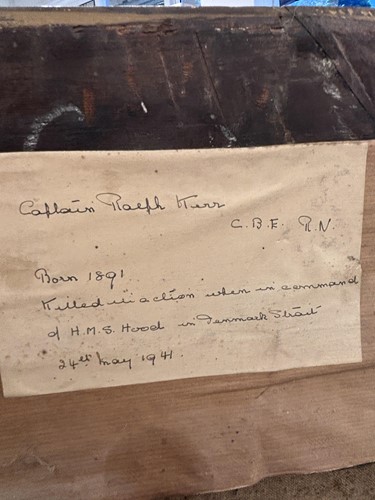 Captain Ralph Kerr
C.B.E. R.N.
Born 1891
Killed in action when in command
of H.M.S. Hood in Denmark Strait
24th May 1941.